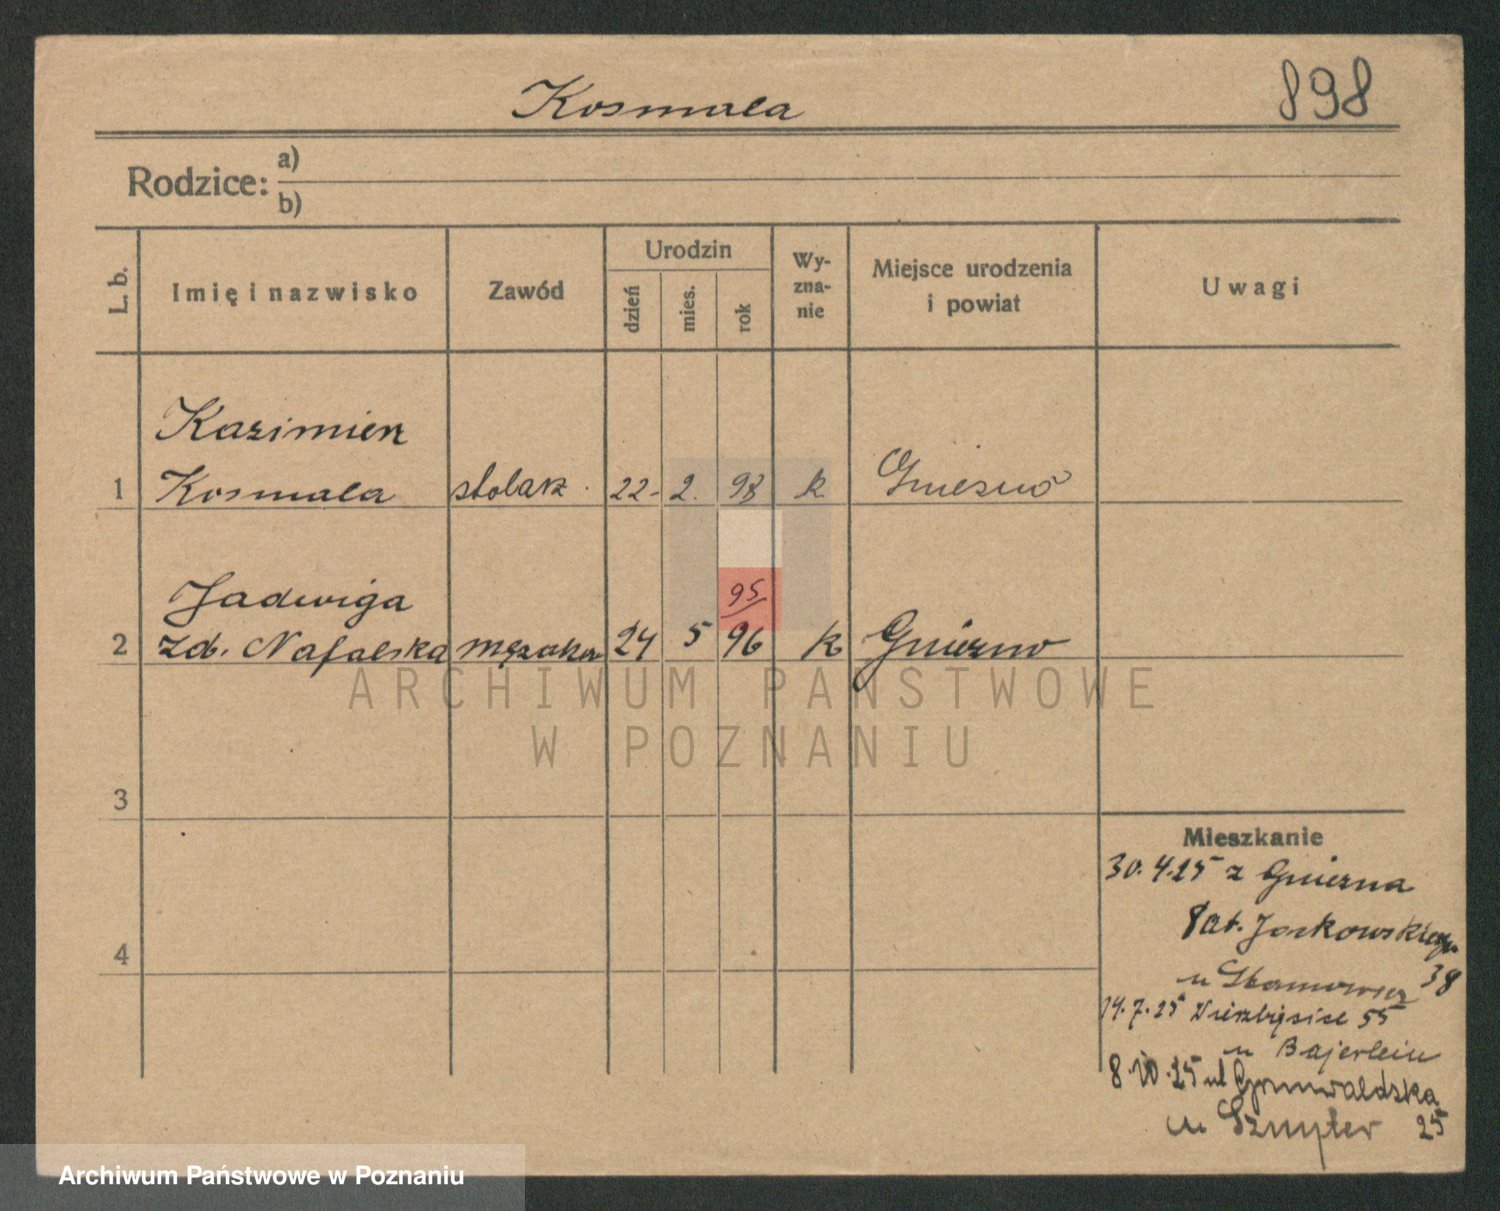 Kosmala
898
Rodzice:
a)
b)
L. b.
Imię i nazwisko
Zawód
Urodzin
dzień
mies.
rok
Wy-
zna-
nie
Miejsce urodzenia
i powiat
Uwagi
Kazimierz
1 Kosmala stolarz 22. 2. 98 k. Gniezno
Jadwiga 95
2 zd. Nafalska mężatka 24 5 96 k Gniezno
3
4
Mieszkanie
30.4.25 z Gniezna
Pat. Jackowskiego
38
u
14.7.25 Wierzbięcice 55
u Bajerlein
8.10.25 ul Grunwaldska
u Szmyter 25
ARCHIWUM PAŃSTWOWE
W POZNANIU
Archiwum Państwowe w Poznaniu